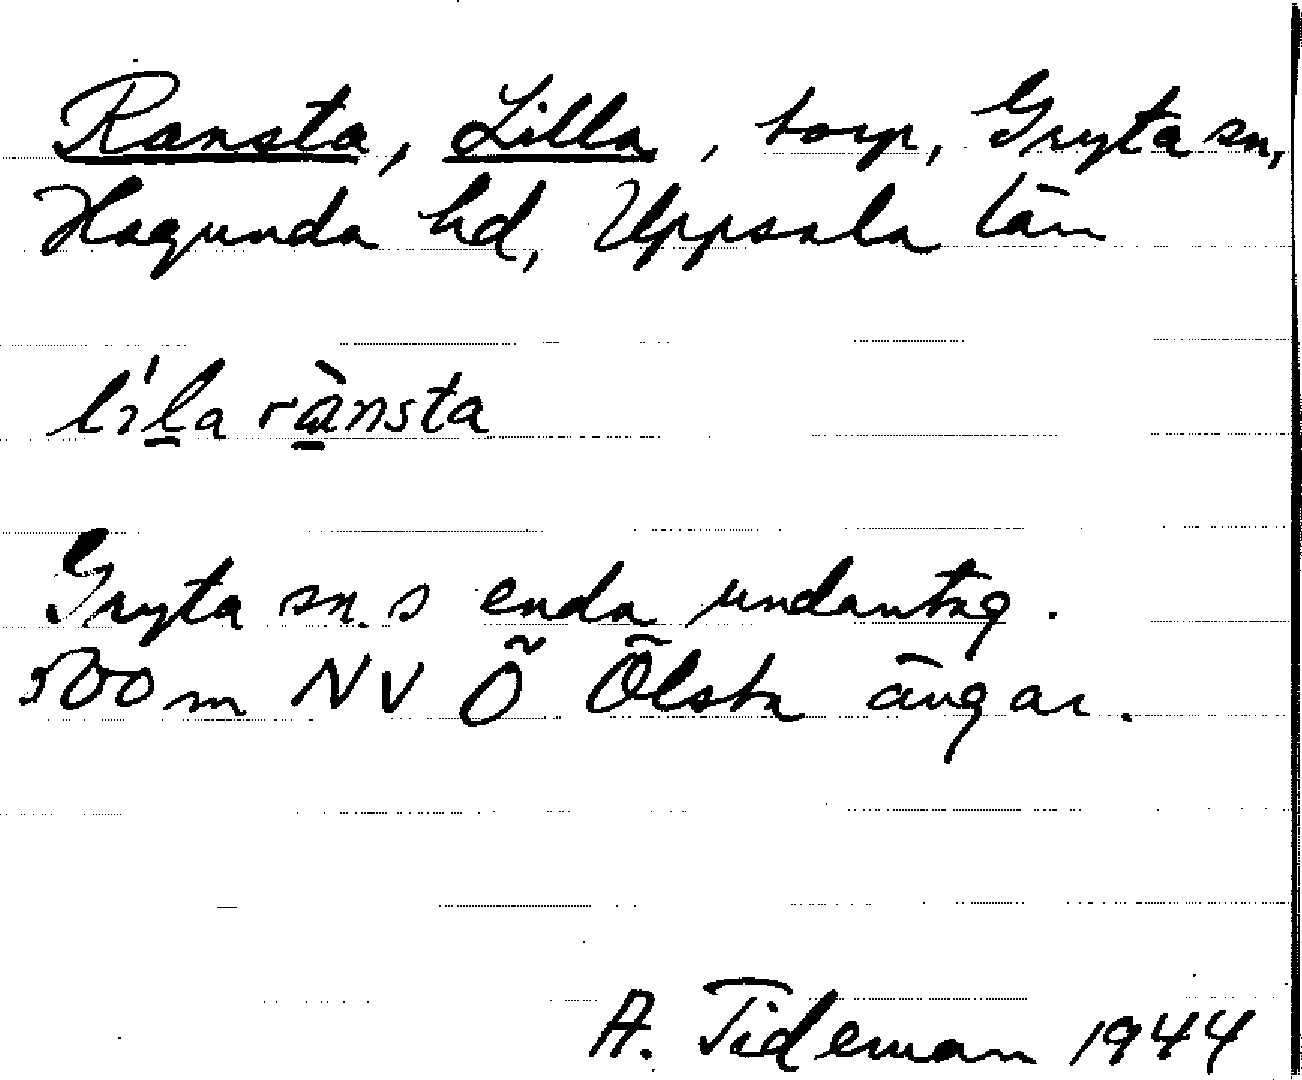 Ransta, Lilla, torp, Gryta sn,
Hagunda hd, Uppsala län
líl̲a rà̲nsta
Gryta sn.s enda undantag.
500 m NV Ö Ölsta ängar.
A. Tideman 1944